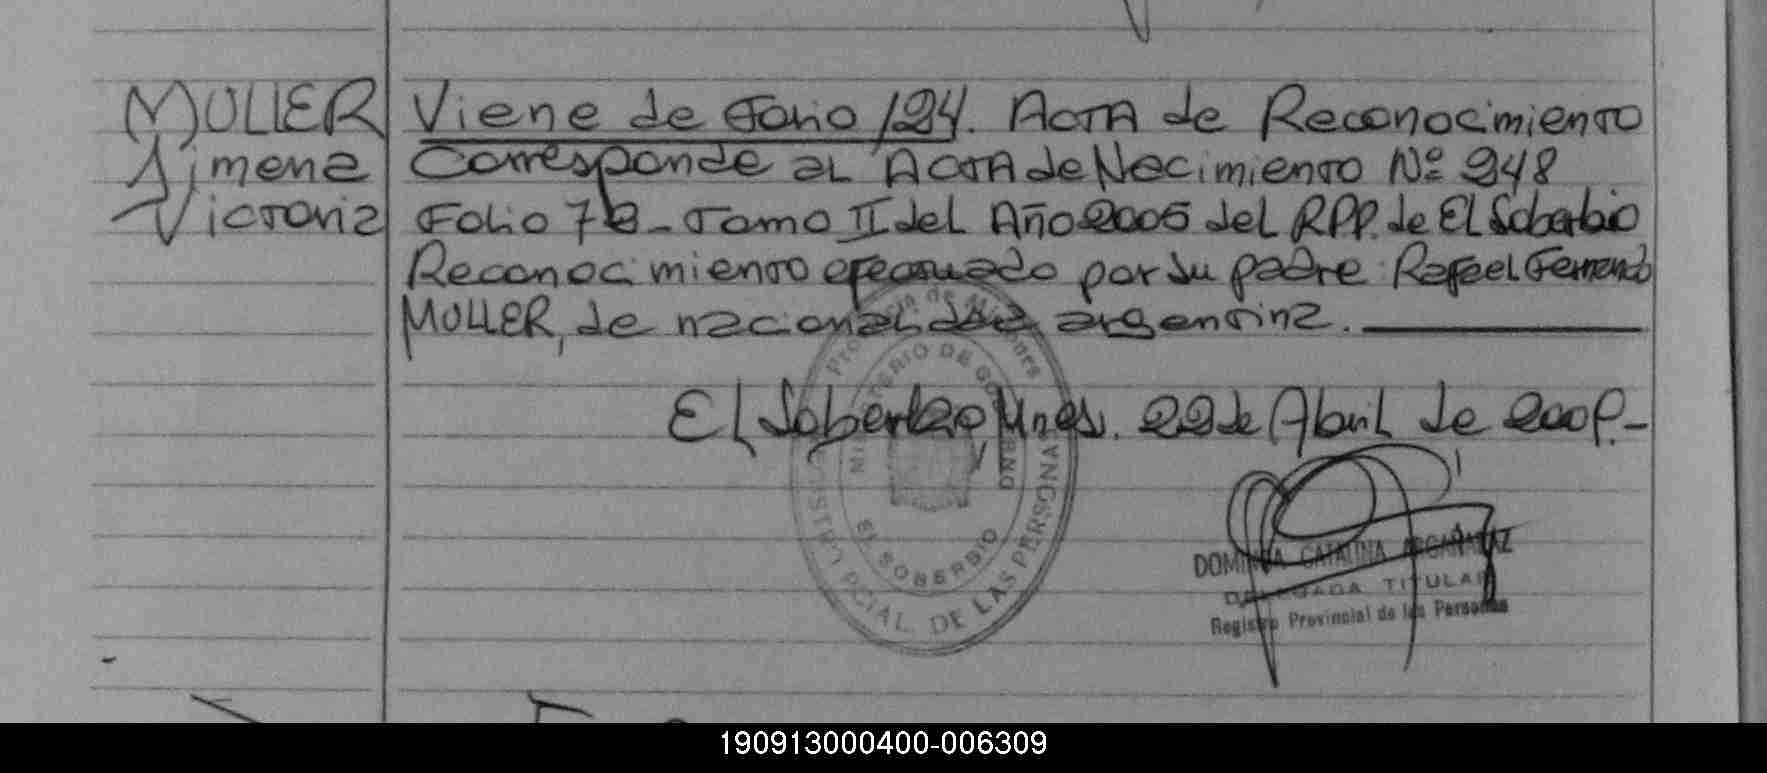 MULLER Viene de Folio 124. Acta de Reconocimiento
Jimena Corresponde al Acta de Nacimiento Nº 248
Victoria Folio 78 - Tomo II del Año 2005 del RPP. de El Soberbio
Reconocimiento efectuado por su padre: Rafael Fernando
MULLER, de nacionalidad argentina.
El Soberbio Mnes. 22 de Abril de 2008.-
Provincia de Misiones
MINISTERIO DE GOBIERNO
EL SOBERBIO
REGISTRO PCIAL. DE LAS PERSONAS
DOMINGA CATALINA ARGAÑARAZ
DELEGADA TITULAR
Registro Provincial de las Personas
190913000400-006309